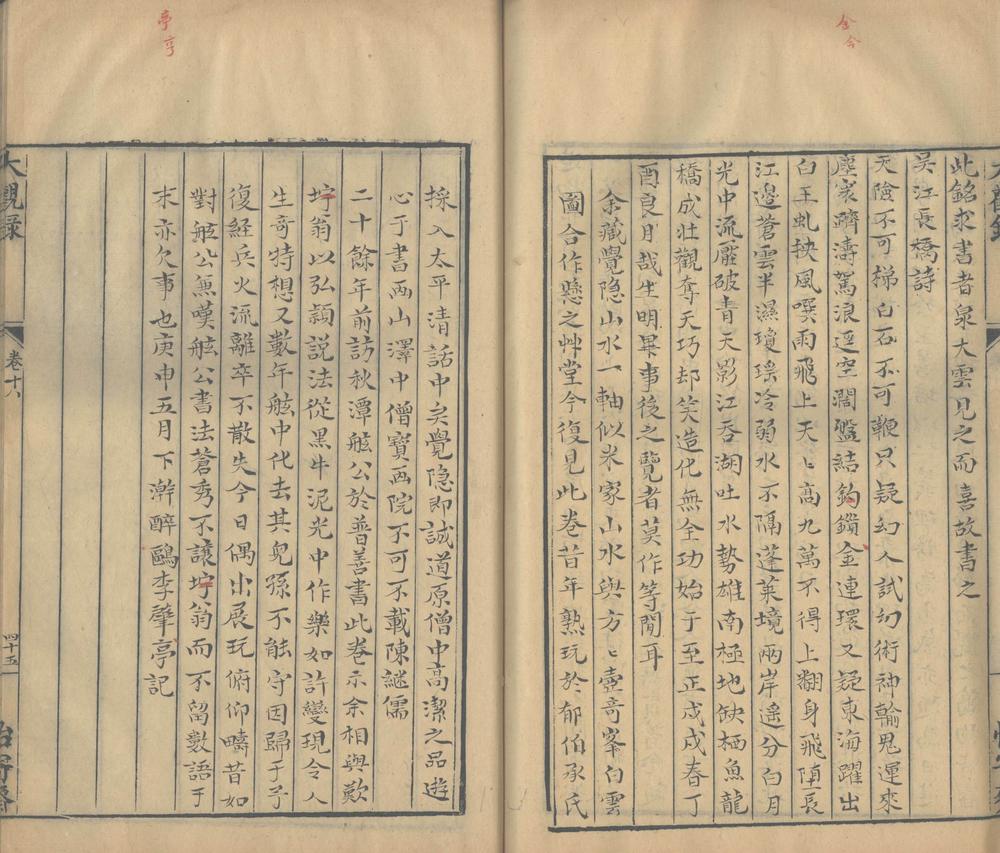 此銘求書者泉大雲見之而喜故書之
吴江長橋詩
天險不可梯白石不可鞭只疑幻人試幻術神輸鬼運來
塵寰躋濤駕浪逕空濶盤結鈎鎻金連環又疑東海躍出
白玉虬抉風噀雨飛上天〻高九萬不得上翻身飛墮長
江邊蒼雲半濕瓊瑶冷弱水不隔蓬萊境兩岸遥分白月
光中流壓破青天影江吞湖吐水勢雄南極地缺栖魚龍
橋成壯觀奪天巧却笑造化無全功始于至正戍戍春丁
酉良月哉生明畢事後之覽者莫作等閒耳
余藏覺隐山水一軸似米家山水與方〻壺竒峯白雲
圖合作懸之艸堂今復見此卷昔年熟玩於郁伯承氏
採入太平清話中矣覺隐即誠道原僧中高潔之品遊
心于書画山澤中僧寳画院不可不載陳繼儒
二十餘年前訪秋潭舷公於普善書此卷示余相與歎
㝉翁以弘頴説法從黑牛泥光中作樂如許變現令人
生竒特想又數年舷中化去其兒孫不能守因歸于予
復經兵火流離卒不散失今日偶出展玩俯仰疇昔如
對舷公無嘆舷公書法蒼秀不讓㝉翁而不留數語于
末亦欠事也庚申五月下澣醉鷗李肇亭記
大觀録
卷十六
四十五
亭亨
金今